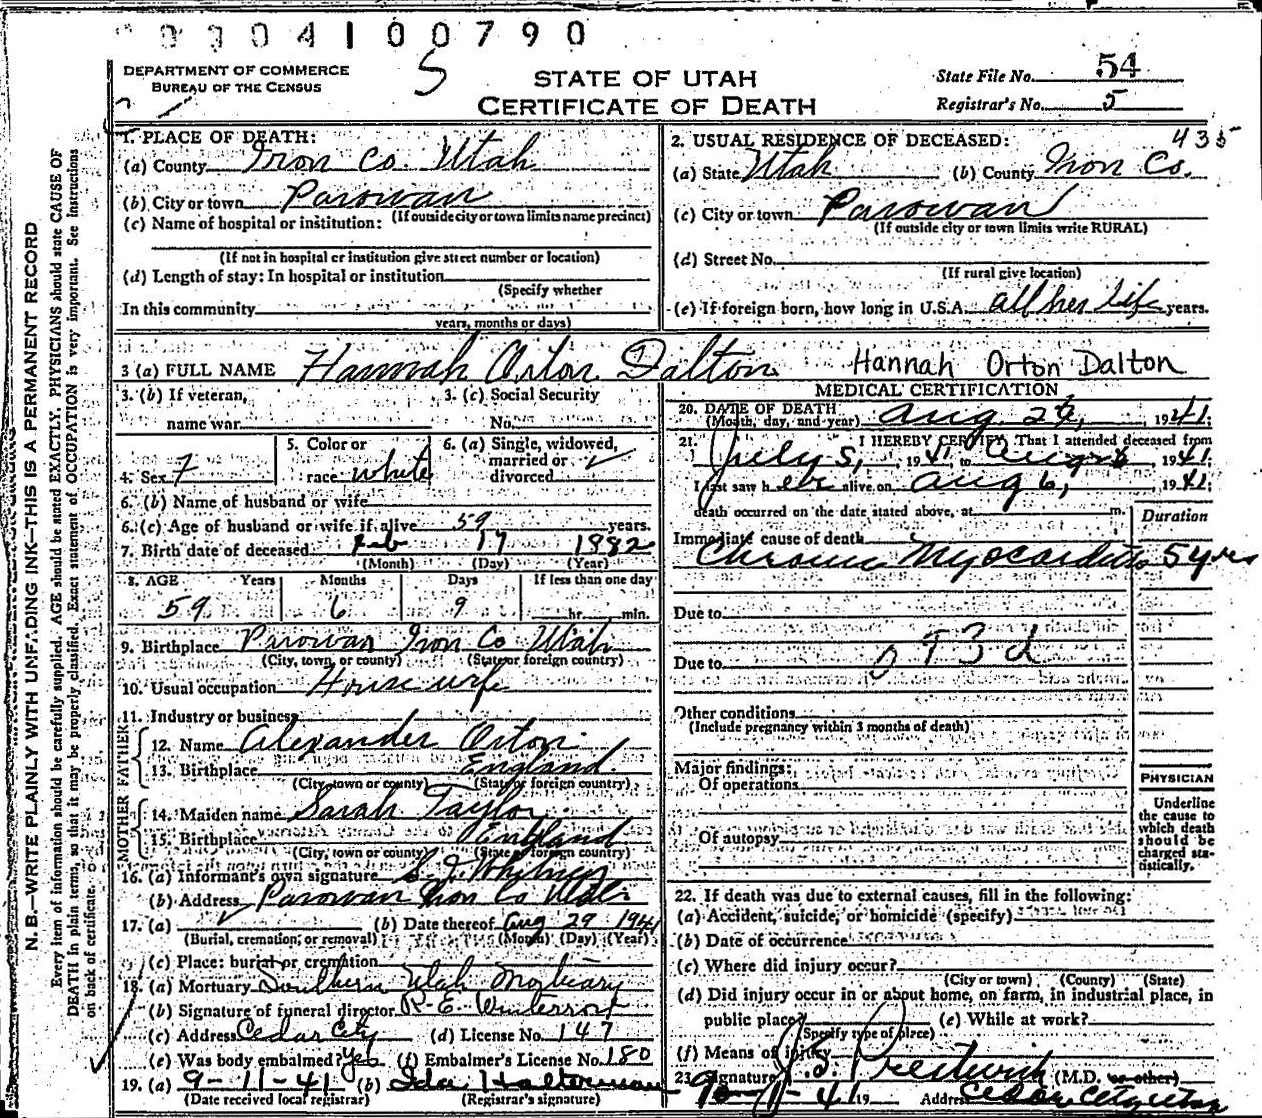 0304100790
DEPARTMENT OF COMMERCE
BUREAU OF THE CENSUS
S
STATE OF UTAH
CERTIFICATE OF DEATH
State File No. 54
Registrar's No. 5
N. B.—WRITE PLAINLY WITH UNFADING INK—THIS IS A PERMANENT RECORD
Every item of information should be carefully supplied. AGE should be stated EXACTLY. PHYSICIANS should state CAUSE OF
DEATH in plain terms, so that it may be properly classified. Exact statement of OCCUPATION is very important. See instructions
on back of certificate.
1. PLACE OF DEATH:
(a) County Iron Co. Utah
(b) City or town Parowan
(If outside city or town limits name precinct)
(c) Name of hospital or institution:
(If not in hospital or institution give street number or location)
(d) Length of stay: In hospital or institution
(Specify whether
In this community
years, months or days)
2. USUAL RESIDENCE OF DECEASED: 435
(a) State Utah (b) County Iron Co.
(c) City or town Parowan
(If outside city or town limits write RURAL)
(d) Street No.
(If rural give location)
(e) If foreign born, how long in U.S.A. all her life years.
3 (a) FULL NAME Hannah Orton Dalton Hannah Orton Dalton
3. (b) If veteran, 3. (c) Social Security
name war No.
4. Sex F 5. Color or race white 6. (a) Single, widowed, married or divorced ✓
6. (b) Name of husband or wife
6. (c) Age of husband or wife if alive 59 years.
7. Birth date of deceased Feb 17 1982
(Month) (Day) (Year)
8. AGE Years Months Days If less than one day
59 6 9 hr. min.
9. Birthplace Parowan Iron Co Utah
(City, town, or county) (State or foreign country)
10. Usual occupation House wife
11. Industry or business
FATHER
12. Name Alexander Orton
13. Birthplace England
(City, town or county) (State or foreign country)
MOTHER
14. Maiden name Sarah Taylor
15. Birthplace England
(City, town or county) (State or foreign country)
16. (a) Informant's own signature S. J. Whitney
(b) Address Parowan Iron Co Utah
17. (a) ✓ (b) Date thereof Aug 29 1941
(Burial, cremation, or removal) (Month) (Day) (Year)
(c) Place: burial or cremation
18. (a) Mortuary Southern Utah Mortuary
(b) Signature of funeral director R. E. Winterrose
(c) Address Cedar City (d) License No. 147
(e) Was body embalmed? Yes (f) Embalmer's License No. 180
19. (a) 9-11-41 (b) Ida Halterman
(Date received local registrar) (Registrar's signature)
MEDICAL CERTIFICATION
20. DATE OF DEATH
(Month, day, and year) Aug. 26, 1941;
21. I HEREBY CERTIFY, That I attended deceased from
July 5, 1941 to Aug 1941;
I last saw her alive on Aug 6, 1941;
death occurred on the date stated above, at m.
Duration
Immediate cause of death
Chronic Myocarditis 5 yrs
Due to
Due to 093d
Other conditions
(Include pregnancy within 3 months of death)
Major findings:
Of operations
Of autopsy
PHYSICIAN
Underline
the cause to
which death
should be
charged sta-
tistically.
22. If death was due to external causes, fill in the following:
(a) Accident, suicide, or homicide (specify)
(b) Date of occurrence
(c) Where did injury occur?
(City or town) (County) (State)
(d) Did injury occur in or about home, on farm, in industrial place, in
public place? (e) While at work?
(Specify type of place)
(f) Means of injury
23. Signature J. S. Prestwich (M.D. or other)
41 19 Address Cedar City Utah